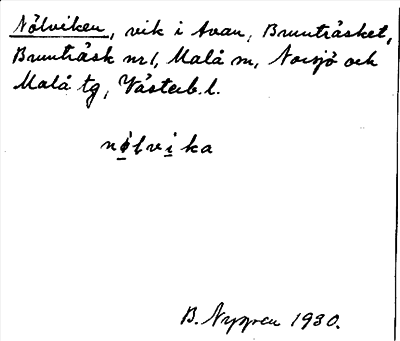 Nölviken, vik i Avan, Brunträsket,
Brunträsk nr 1, Malå sn, Norsjö och
Malå tg, Västerb. l.
nølvika
B. Nygren 1930.